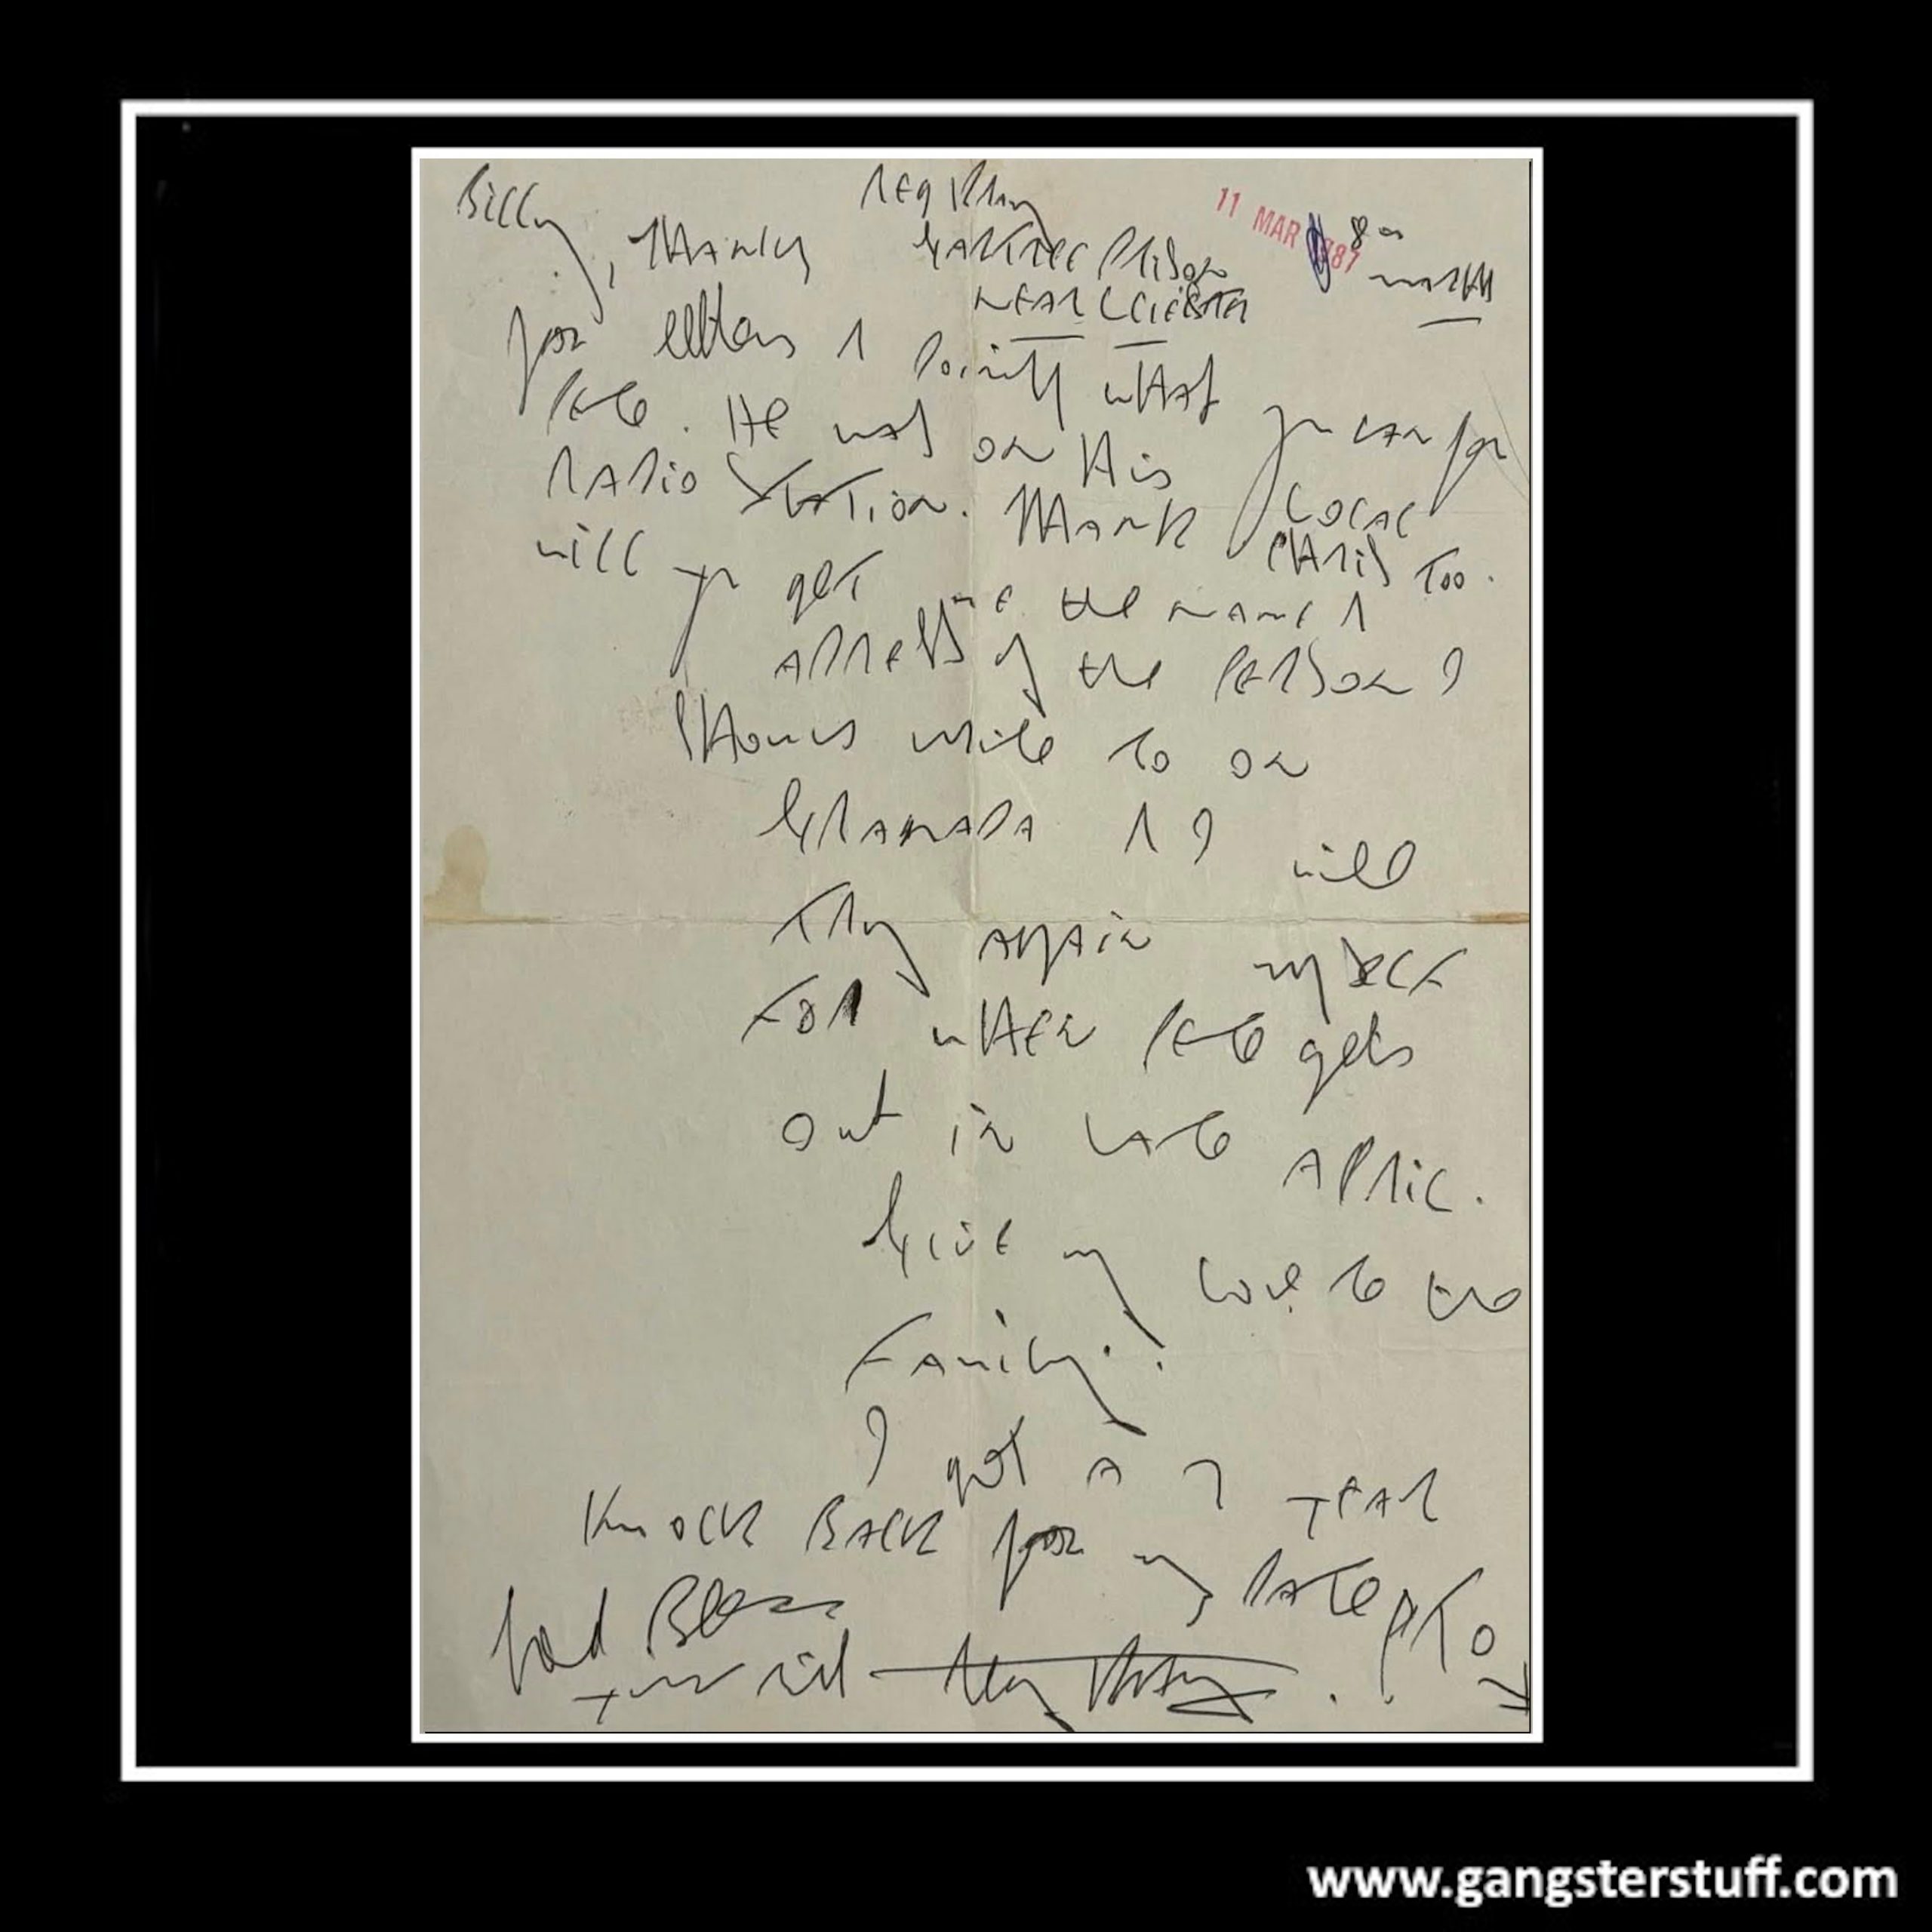 Billy, Thanks
Reg Kray
Gartree Prison
Near Leicester
11 MAR 1987
8
March
for letters & doing what you can for
Pete. He was on His Local
Radio Station. Thank Chris too.
will you get me the name &
address of the Person I
should write to on
Granada & I will
Try again myself
For when Pete gets
out in late April.
Give my love to the
Family.
I got a 2 year
Knock Back for my Date PTO
God Bless
Your Friend Reg Kray.
www.gangsterstuff.com